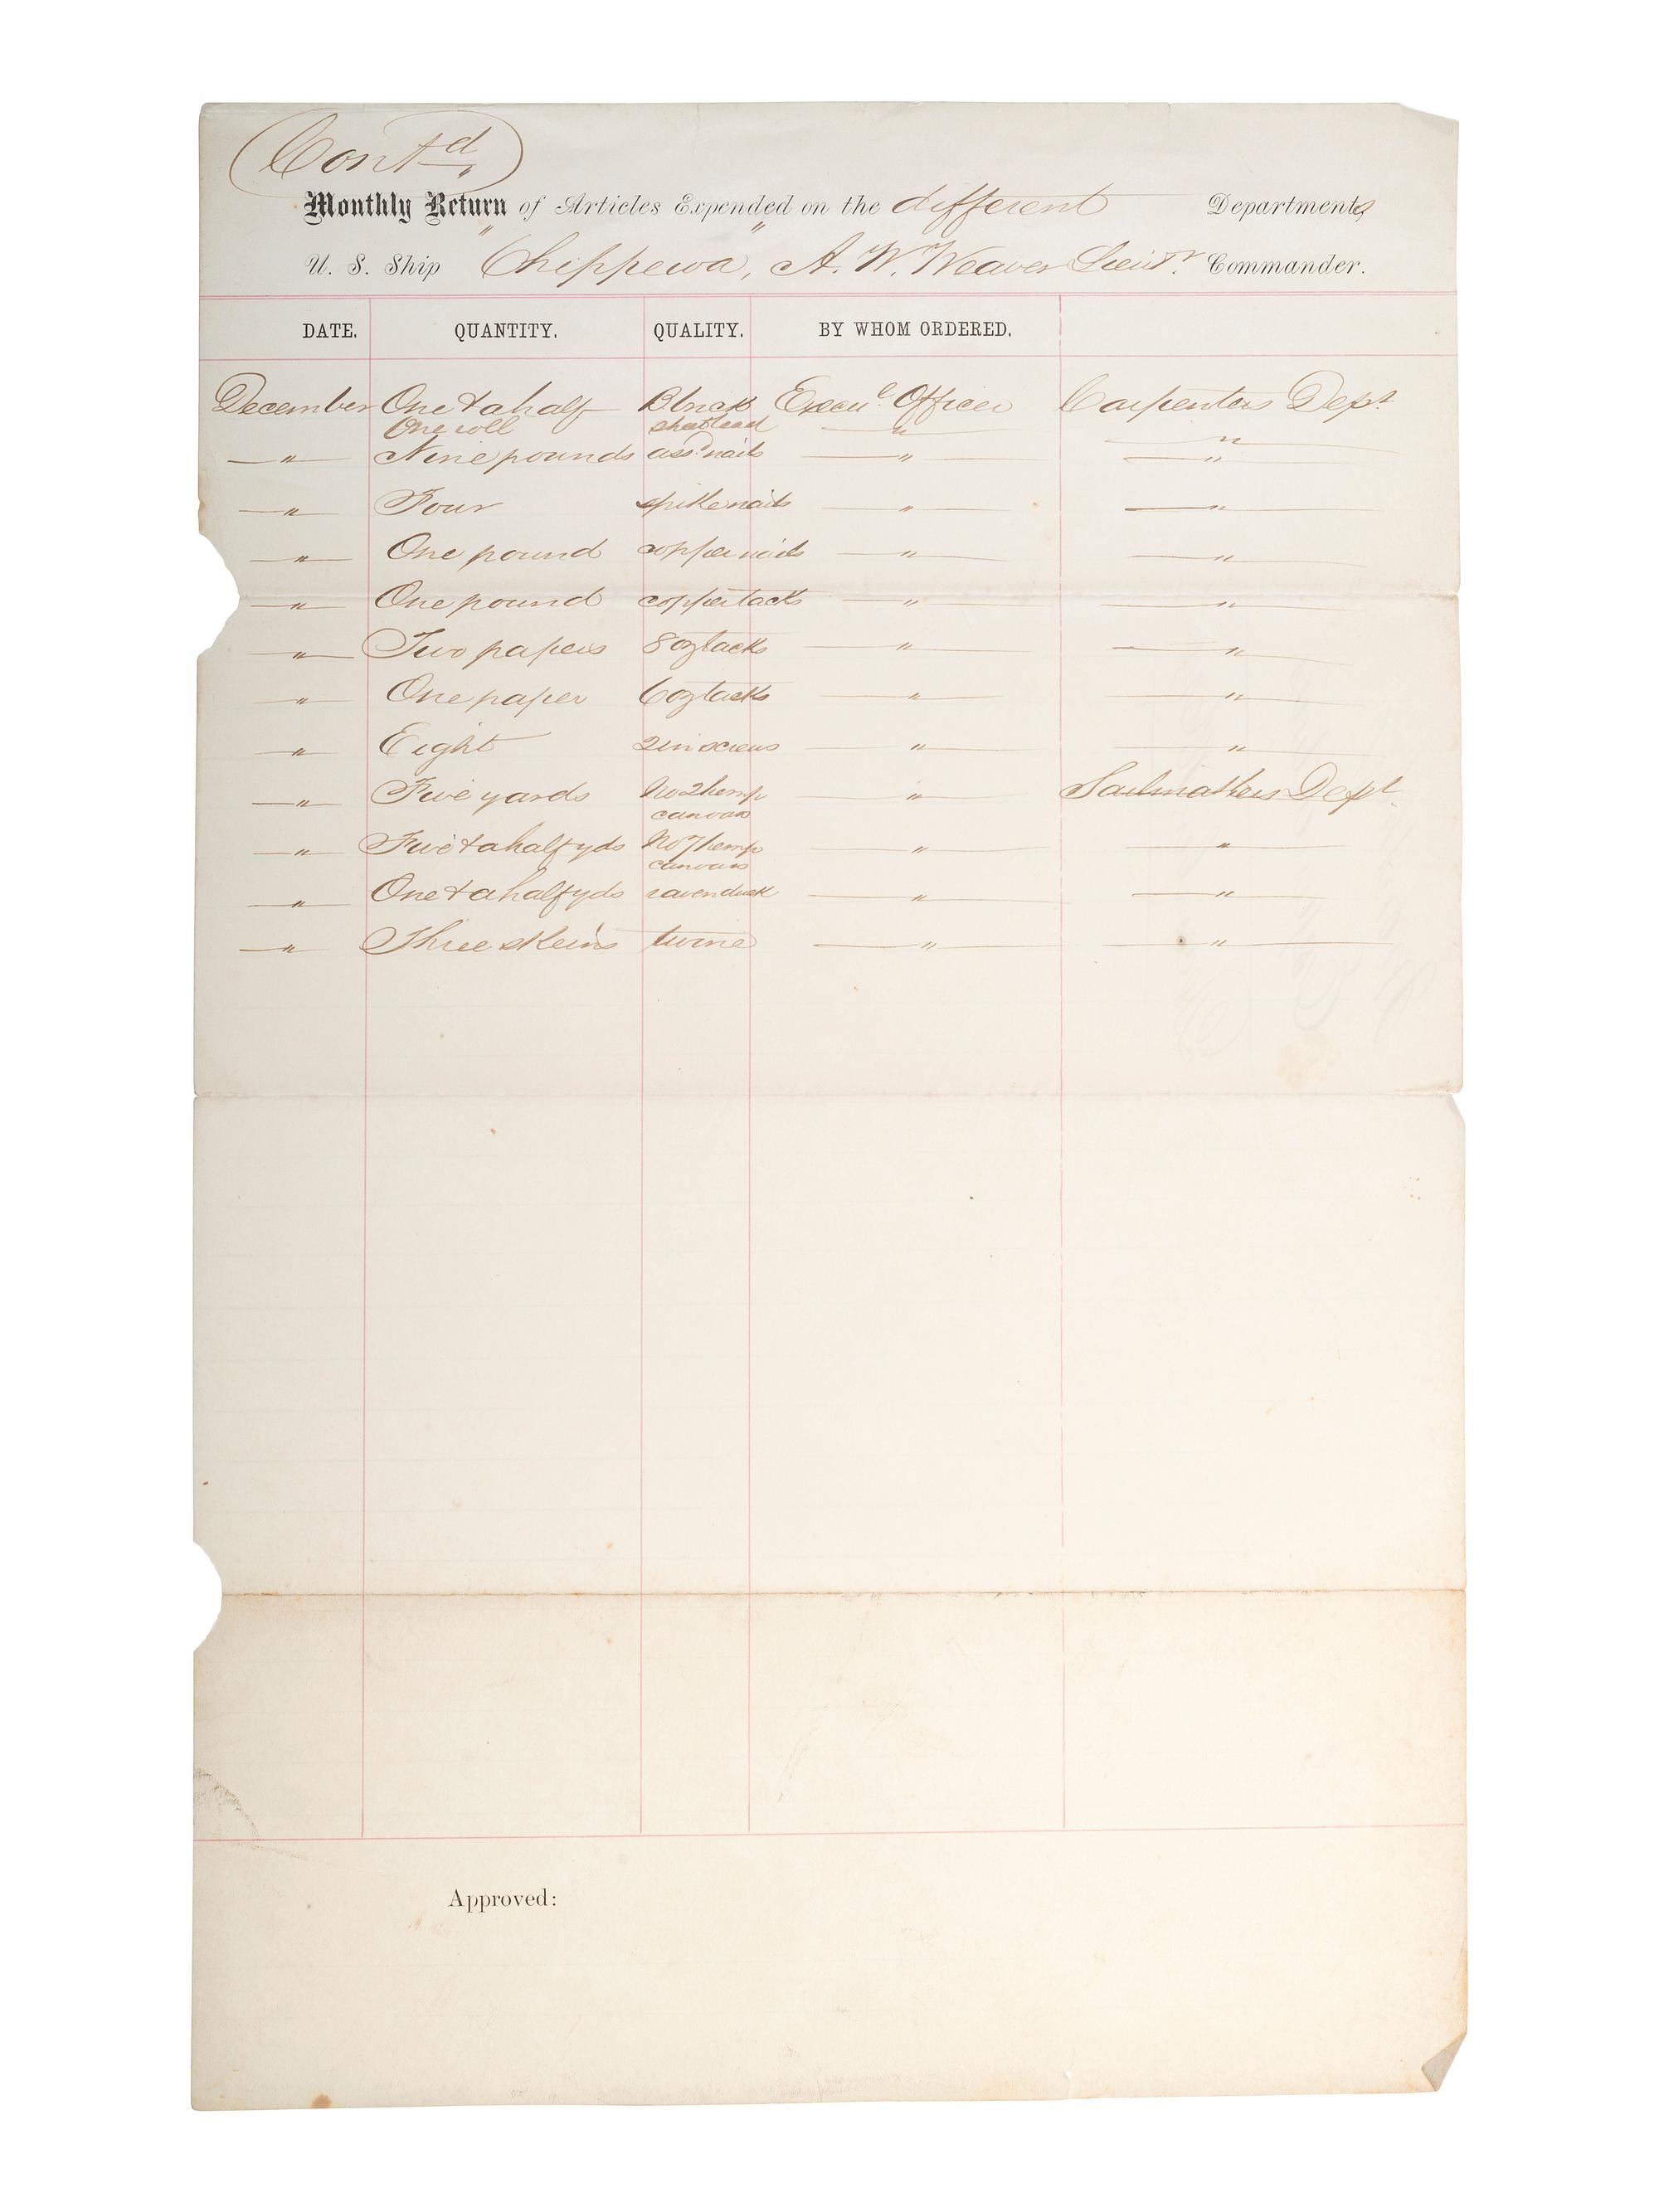 Contd,
Monthly Return of Articles Expended on the different Departments
U. S. Ship "Chippewa," A. W. Weaver Lieutr Commander.
DATE. QUANTITY. QUALITY. BY WHOM ORDERED.
December One & a half Brick Execue Officer Carpenters Dept
One roll sheet lead " "
" Nine pounds assd nails " "
" Four spike nails " "
" One pound copper nails " "
" One pound copper tacks " "
" Two papers 8 oz tacks " "
" One paper 6 oz tacks " "
" Eight 2 in screws " "
" Five yards No 2 hemp canvas " Sailmakers Dept.
" Five & a half yds No 7 hemp canvas " "
" One & a half yds ravenduck " "
" Three skeins twine " "
Approved: